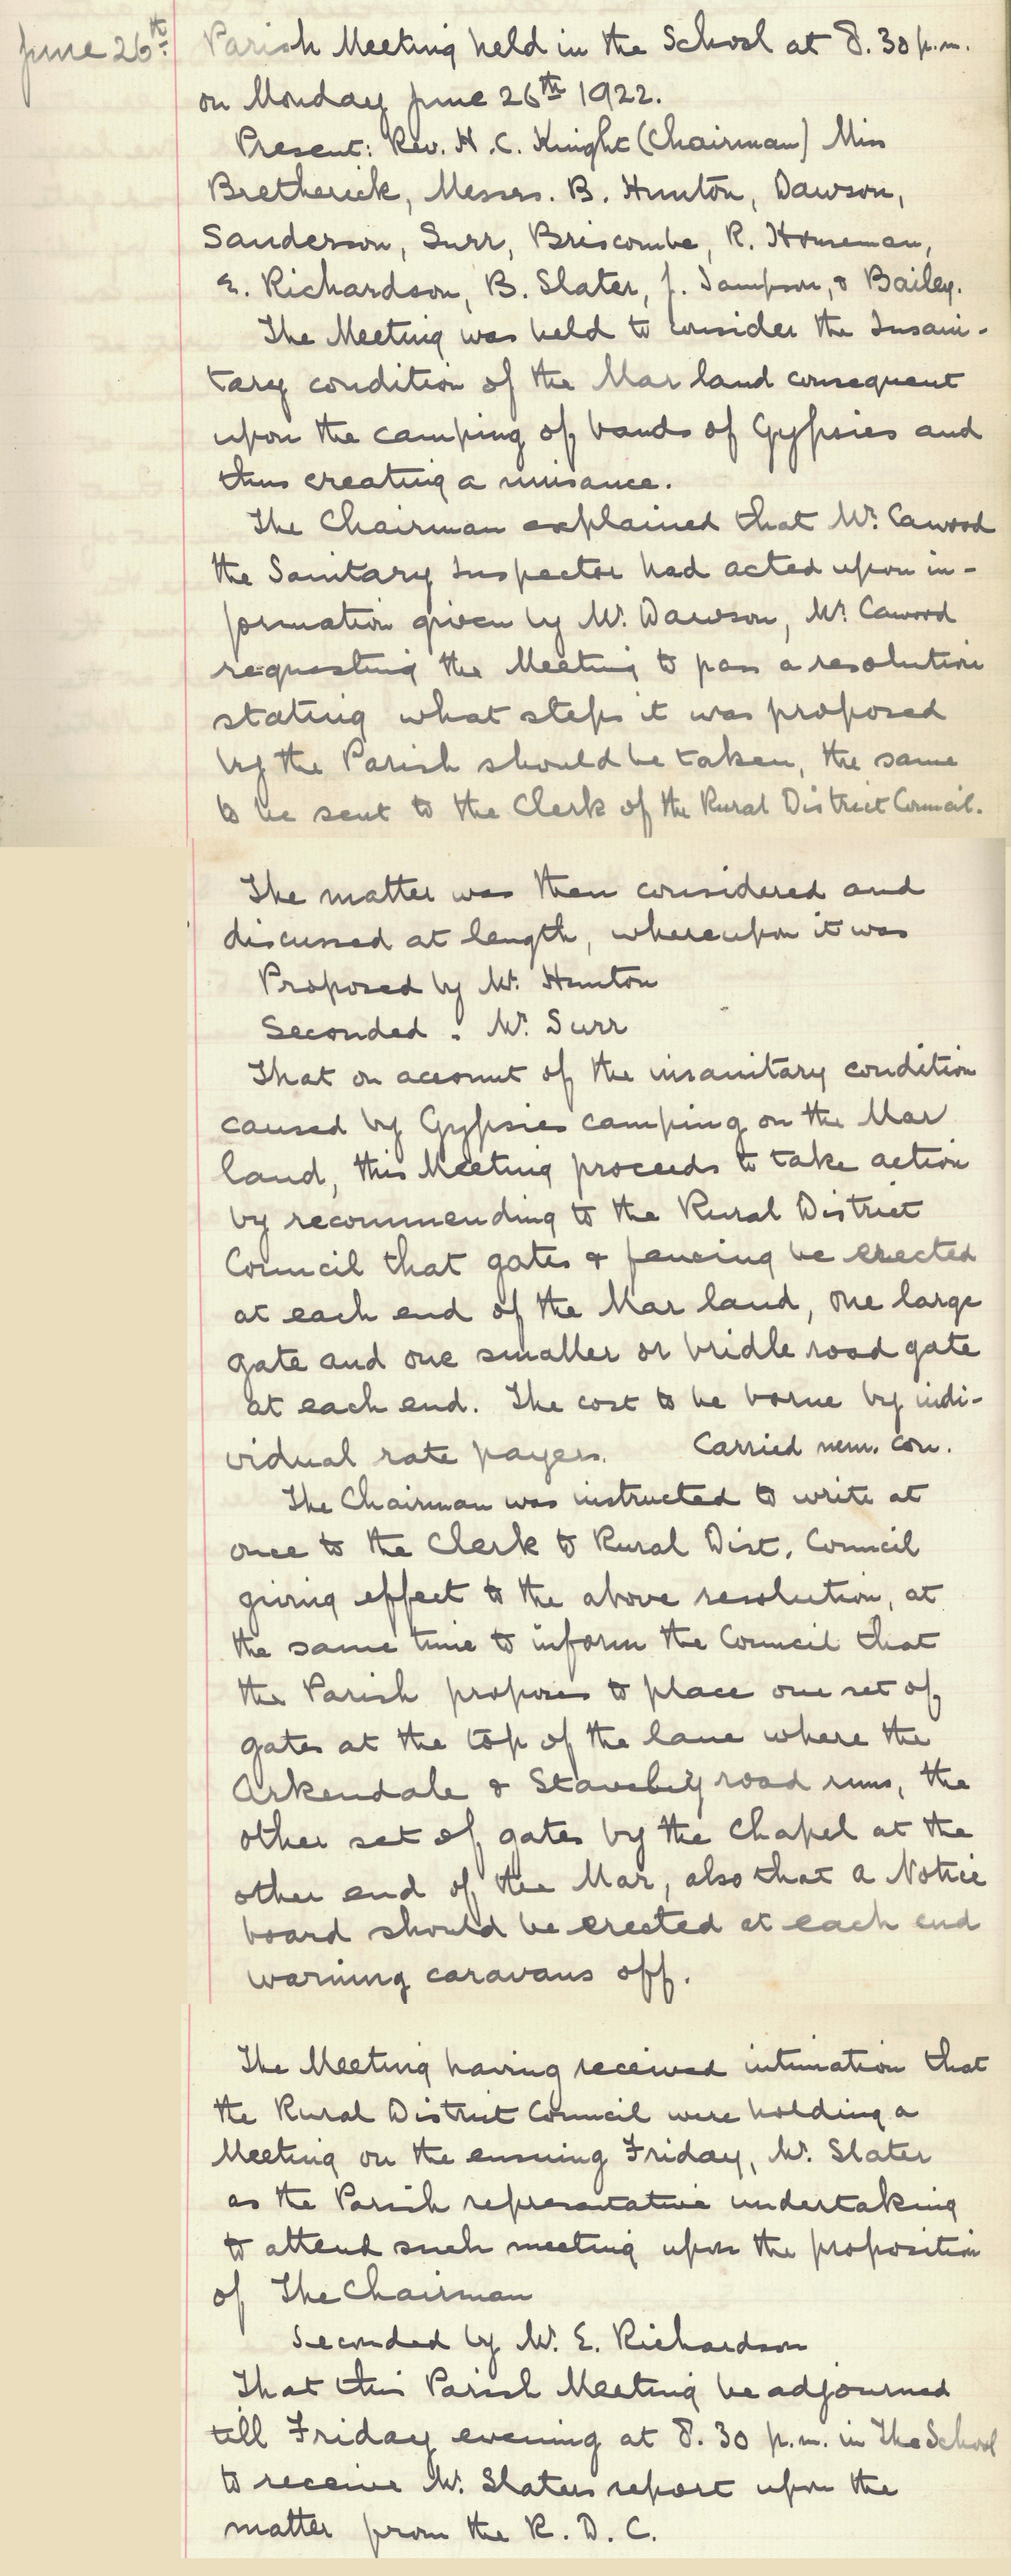 June 26th. Parish Meeting held in the School at 8.30 p.m.
on Monday June 26th 1922.
Present: Rev. H. C. Knight (Chairman) Miss
Bretherick, Messrs. B. Hunton, Dawson,
Sanderson, Surr, Briscombe, R. Houseman,
E. Richardson, B. Slater, J. Sampson, & Bailey.
The Meeting was held to consider the Insani-
tary condition of the Mar land consequent
upon the camping of bands of Gypsies and
thus creating a nuisance.
The Chairman explained that Mr. Cawood
the Sanitary Inspector had acted upon in-
formation given by Mr. Dawson, Mr. Cawood
requesting the Meeting to pass a resolution
stating what steps it was proposed
by the Parish should be taken, the same
to be sent to the Clerk of the Rural District Council.
The matter was then considered and
discussed at length, whereupon it was
Proposed by Mr. Hunton
Seconded . Mr. Surr
That on account of the insanitary condition
caused by Gypsies camping on the Mar
land, this Meeting proceeds to take action
by recommending to the Rural District
Council that gates & fencing be erected
at each end of the Mar land, one large
gate and one smaller or bridle road gate
at each end. The cost to be borne by indi-
vidual rate payers. Carried nem. con.
The Chairman was instructed to write at
once to the Clerk to Rural Dist. Council
giving effect to the above resolution, at
the same time to inform the Council that
the Parish proposes to place one set of
gates at the top of the lane where the
Arkendale & Staveley road runs, the
other set of gates by the Chapel at the
other end of the Mar, also that a Notice
board should be erected at each end
warning caravans off.
The Meeting having received intimation that
the Rural District Council were holding a
Meeting on the ensuing Friday, Mr. Slater
as the Parish representative undertaking
to attend such meeting upon the proposition
of The Chairman
Seconded by Mr. E. Richardson
That this Parish Meeting be adjourned
till Friday evening at 8.30 p.m. in The School
to receive Mr. Slaters report upon the
matter from the R. D. C.